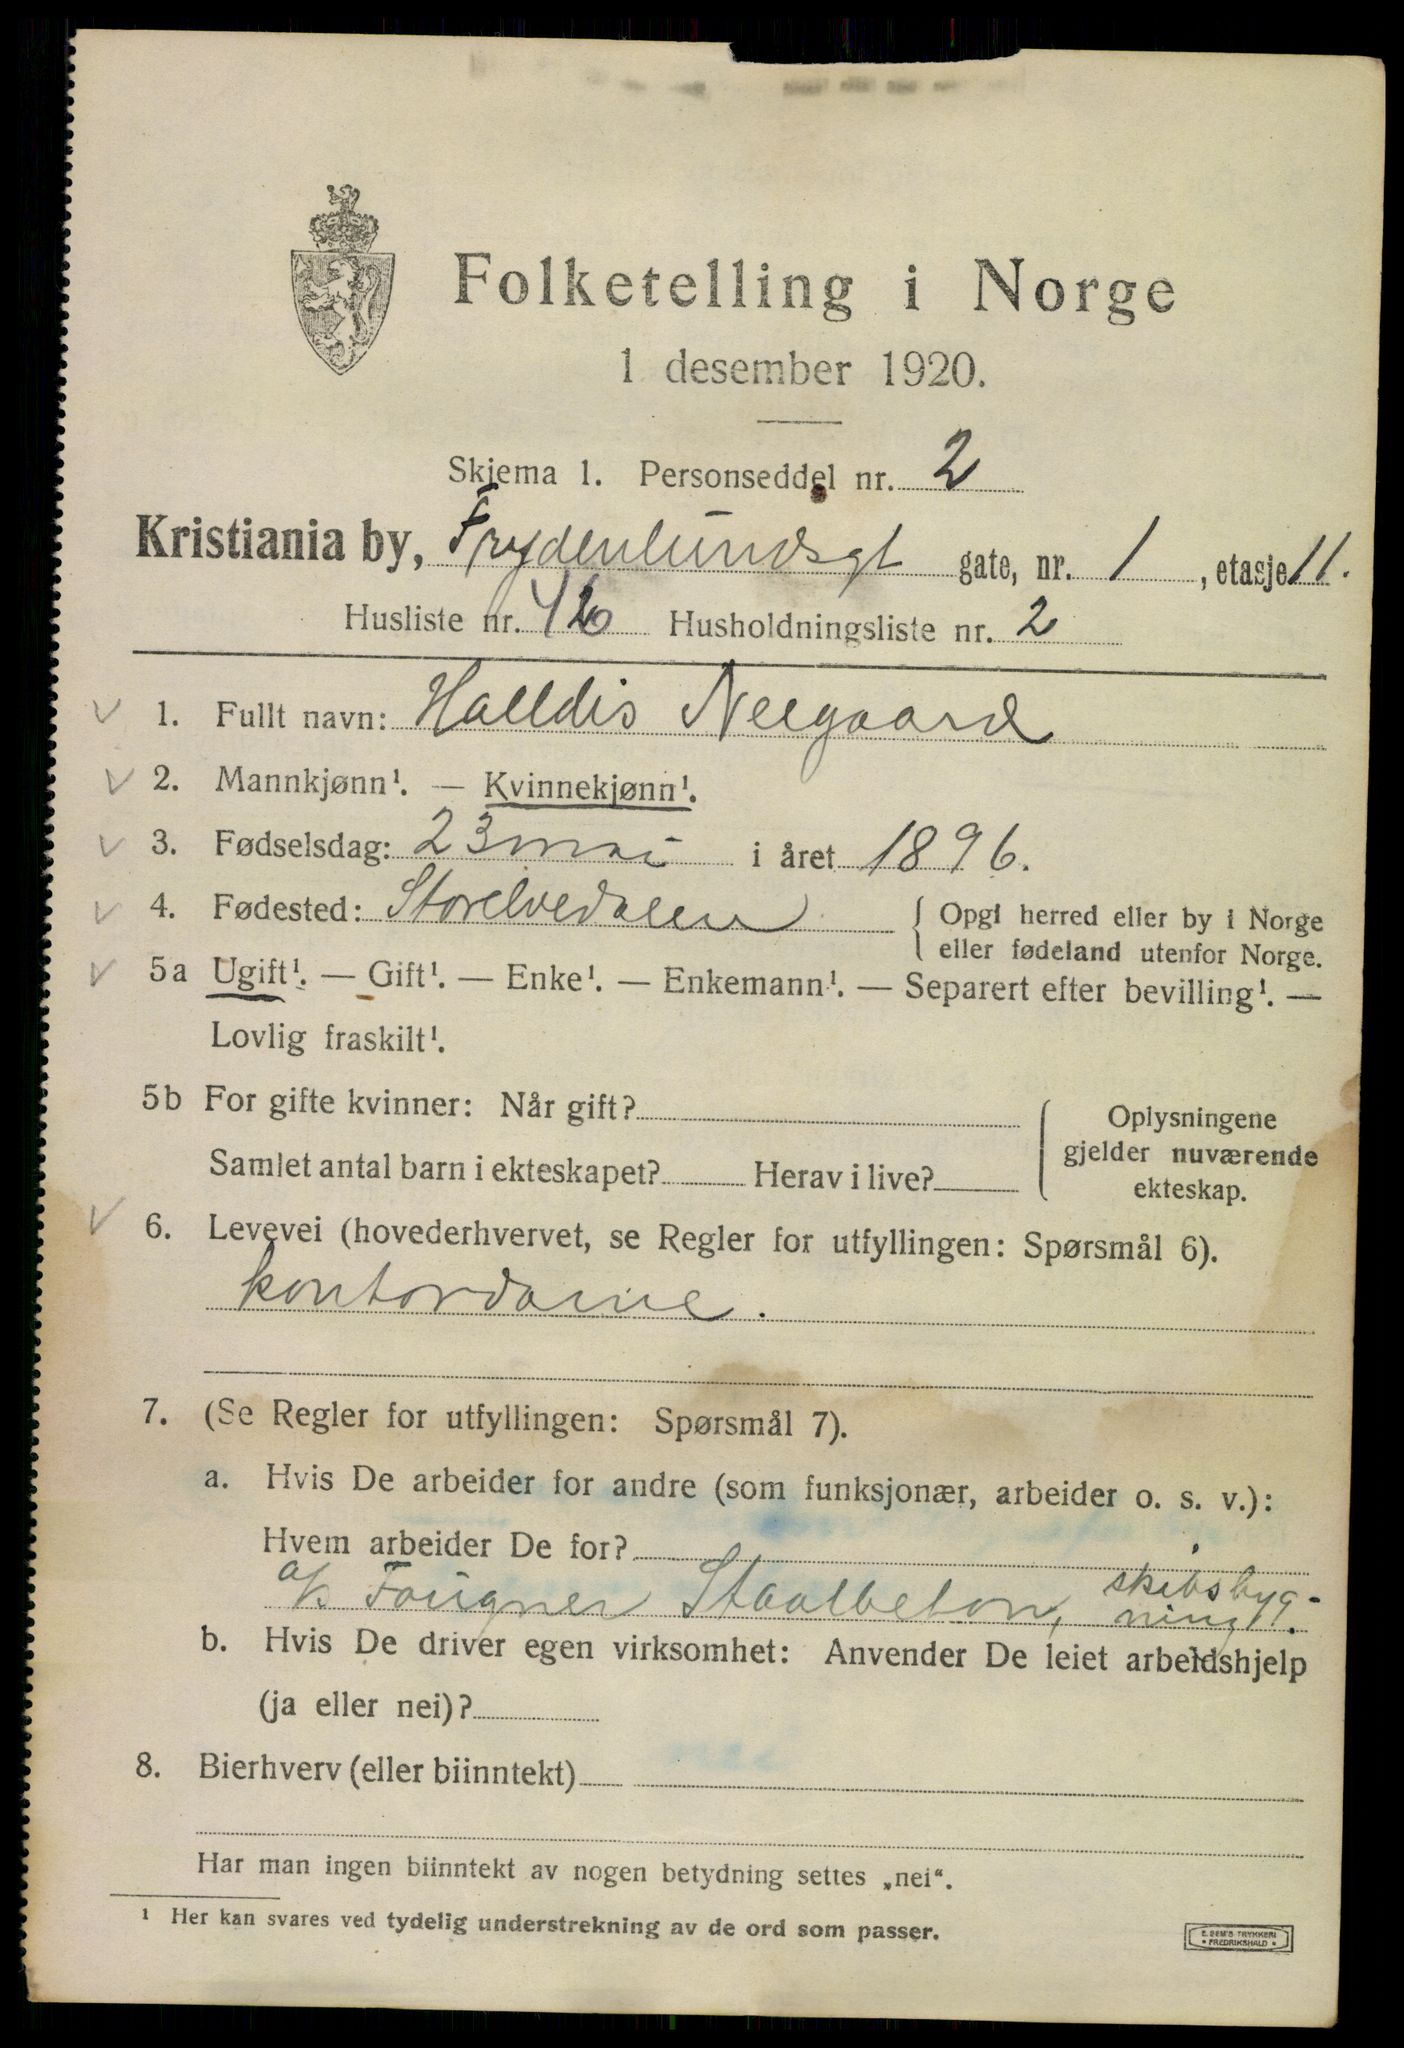 Folketelling i Norge
1 desember 1920.
Skjema 1. Personseddel nr. 2
Kristiania by, Frydenlundsgt gate, nr. 1, etasje 11.
Husliste nr. Husholdningsliste nr. 2
1. Fullt navn: Halldis Neegaard
2. Mannkjønn¹. — Kvinnekjønn¹.
3. Fødselsdag: 23 mai i året 1896.
4. Fødested: Storelvedalen { Opgi herred eller by i Norge
eller fødeland utenfor Norge.
5a Ugift¹. — Gift¹. — Enke¹. — Enkemann¹. — Separert efter bevilling¹. —
Lovlig fraskilt¹.
5b For gifte kvinner: Når gift?
Samlet antal barn i ekteskapet? Herav i live?
Oplysningene
gjelder nuværende
ekteskap.
6. Levevei (hovederhvervet, se Regler for utfyllingen: Spørsmål 6).
kontordame.
7. (Se Regler for utfyllingen: Spørsmål 7).
a. Hvis De arbeider for andre (som funksjonær, arbeider o. s. v.):
Hvem arbeider De for?
a/s Fougner Staalbeton, skibsbyg-
ning.
b. Hvis De driver egen virksomhet: Anvender De leiet arbeidshjelp
(ja eller nei)?
8. Bierhverv (eller biinntekt)
Har man ingen biinntekt av nogen betydning settes „nei“.
¹ Her kan svares ved tydelig understrekning av de ord som passer.
E. SEM'S TRYKKERI
* FREDRIKSHALD *